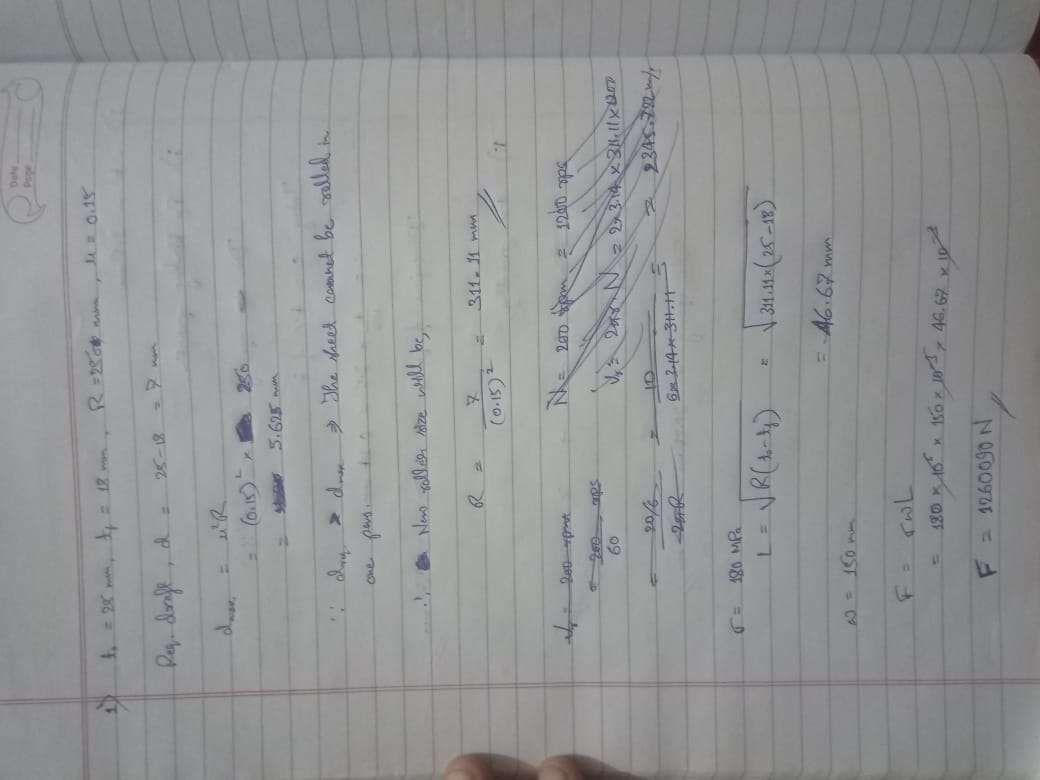 Date
Page
1) t₀ = 25 mm, t_f = 18 mm, R = 250 mm, μ = 0.15
Req. draft, d = 25-18 = 7 mm
d_max. = μ²R
= (0.15)² × 250
= 5.625 mm
∵ d_req. > d_max ⇒ The sheet cannot be rolled in
one pass.
∴ New roller size will be,
R = 7/(0.15)² = 311.11 mm
N = 200 rpm = 1200 rps
V_r = 2πr N = 2×3.14×311.11×1200
= 2345.792 m/s
N_r = 200 rpm
= 200/60 rps
= 20/6 / 2πR = 10 / 6×3.14×311.11 =
σ = 180 MPa
L = √R(t₀-t_f) = √311.11×(25-18)
= 46.67 mm
w = 150 mm
F = σwL
= 180 × 10⁶ × 150 × 10⁻³ × 46.67 × 10⁻³
F = 1260090 N